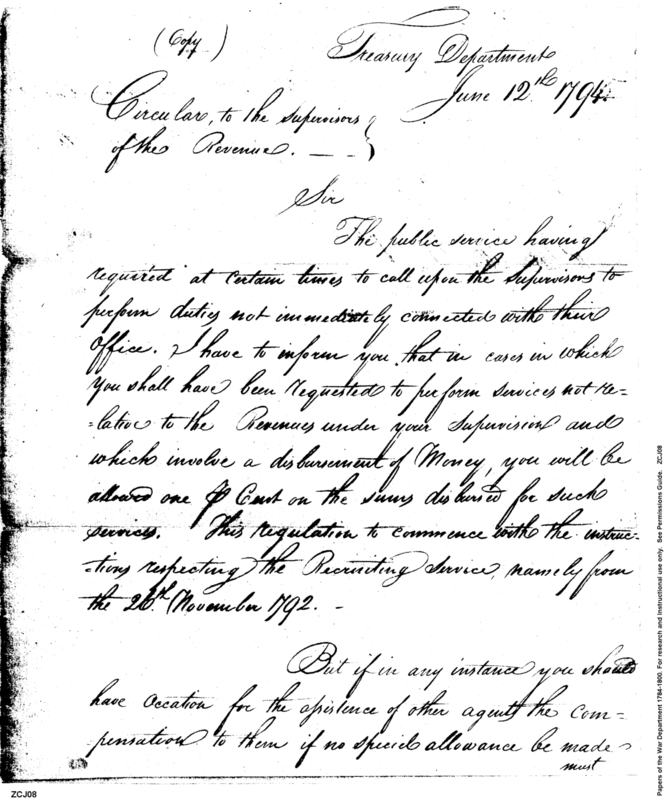 (Copy)
Treasury Department
June 12th 1794.
Circular, to the Supervisors
of the Revenue. — —
Sir
The public service having
required at certain times to call upon the Supervisors to
perform duties not immediately connected with their
Office. I have to inform you that in cases in which
you shall have been requested to perform services not re=
=lative to the Revenues under your Supervision and
which involve a disbursement of Money, you will be
allowed one ⅌ Cent on the sums disbursed for such
services. This regulation to commence with the instruc=
=tions respecting the Recruiting Service, namely from
the 26th November 1792. –
But if in any instance you should
have occation for the assistence of other agents the com=
pensation to them if no special allowance be made
must
ZCJ08
Papers of the War Department 1784-1800. For research and instructional use only. See Permissions Guide. ZCJ08